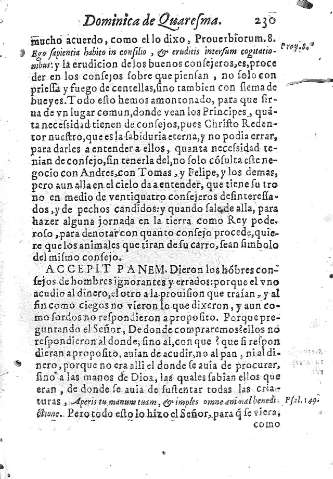 Dominica de Quaresma. 230
mucho acuerdo, como el lo dixo, Prouerbiorum. 8.
Ego sapientia habito in consilio, & eruditis intersum cogitatio- Prou. 8.
nibus: y la erudicion de los buenos consejeros, es, proce
der en los consejos sobre que piensan, no solo con
priessa y fuego de centellas, sino tambien con flema de
bueyes. Todo esto hemos amontonado, para que sir-
ua de vn lugar comun, donde vean los Principes, quã
ta necessidad tienen de consejos, pues Christo Reden-
tor nuestro, que es la sabiduria eterna, y no podia errar,
para darles a entender a ellos, quanta necessidad te-
nian de consejo, sin tenerla del, no solo cõsulta este ne-
gocio con Andres, con Tomas, y Felipe, y los demas,
pero aun alla en el cielo da a entender, que tiene su tro
no en medio de ventiquatro consejeros desinteressa-
dos, y de pechos candidos: y quando sale de alla, para
hazer alguna jornada en la tierra como Rey pode-
roso, para denotar con quanto consejo procede, quie-
re que los animales que tiran de su carro, sean simbolo
del mismo consejo.
ACCEPIT PANEM. Dieron los hõbres con-
sejos de hombres ignorantes y errados: porque el vno
acudio al dinero, el otro a la prouision que traian, y al
fin como ciegos no vieron lo que dixeron, y aun co-
mo sordos no respondieron a proposito. Porque pre-
guntando el Señor, De donde compraremos? ellos no
respondieron al donde, sino al, con que? que si respon
dieran a proposito, auian de acudir, no al pan, ni al di-
nero, porque no era alli el donde se auia de procurar,
sino a las manos de Dios, las quales sabian ellos que
eran, de donde se auia de sustentar todas las cria-
turas, Aperis tu manum tuam, & imples omne animal benedi Psal. 149.
ctione. Pero todo esto lo hizo el Señor, para q̃ se viera,
como